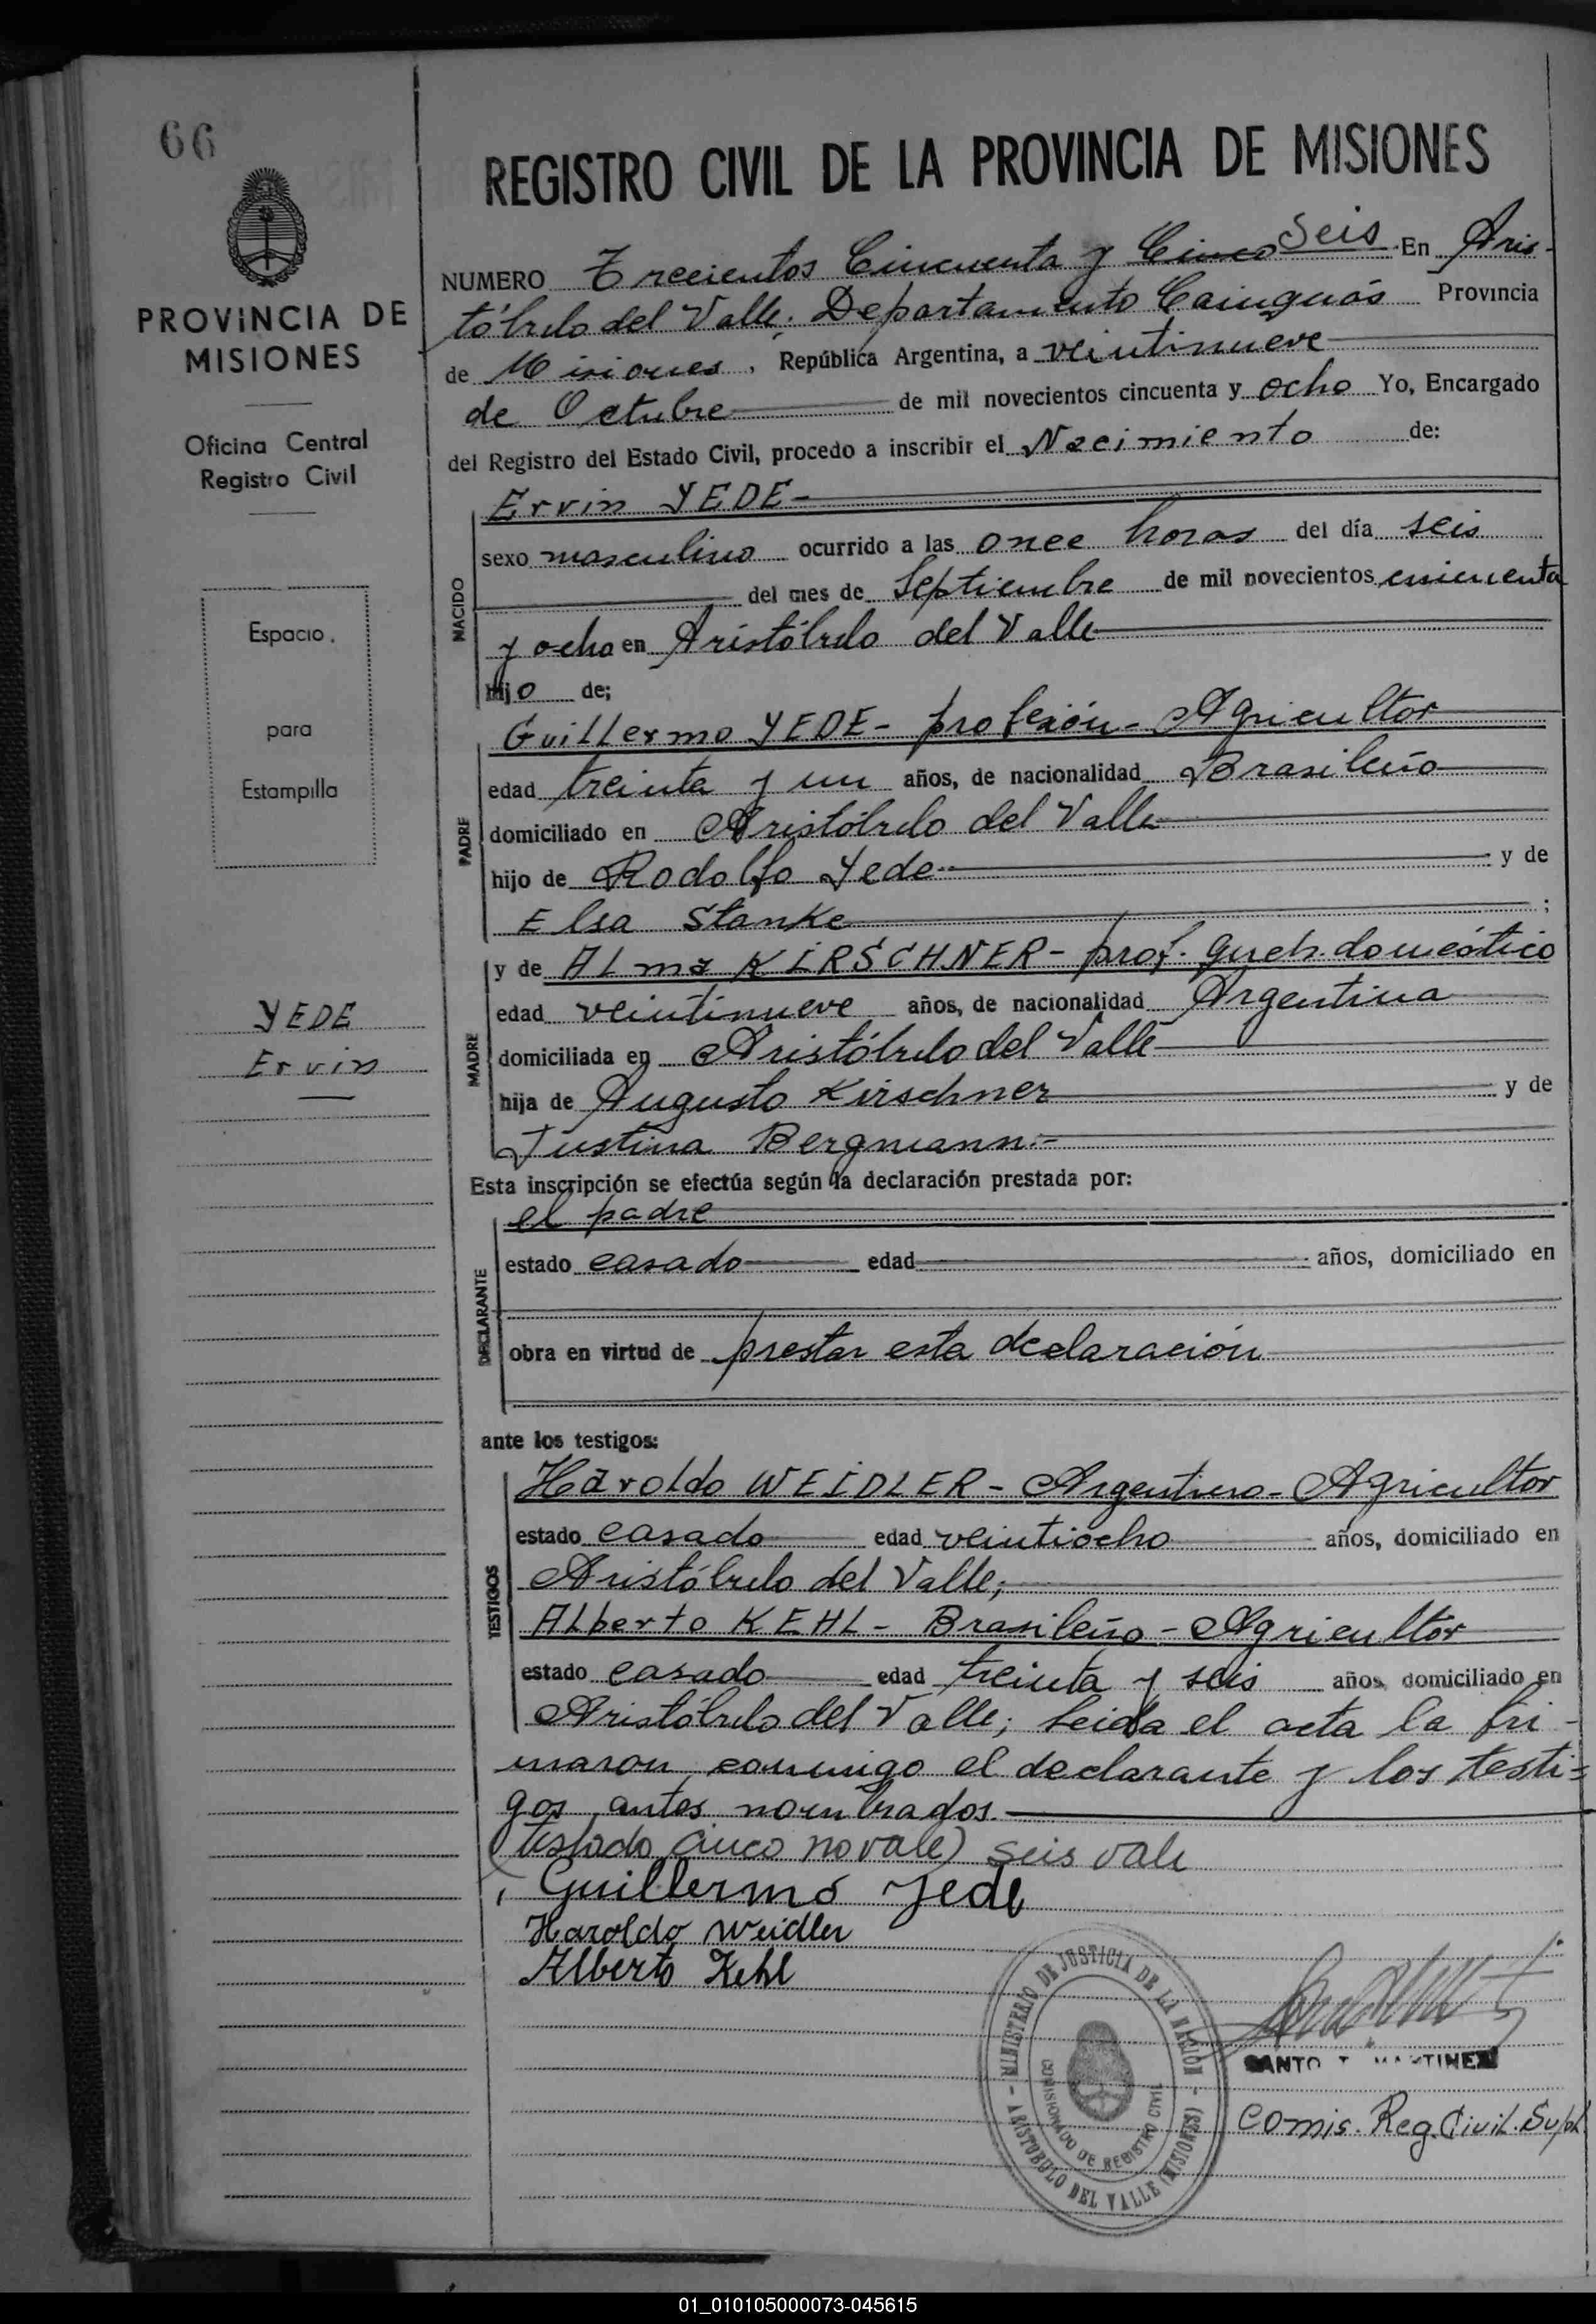 66
REGISTRO CIVIL DE LA PROVINCIA DE MISIONES
PROVINCIA DE
MISIONES
Oficina Central
Registro Civil
Espacio
para
Estampilla
YEDE
Ervin
NUMERO Trecientos Cincuenta y Cinco Seis En Aris-
tóbulo del Valle; Departamento Cainguás Provincia
de Misiones, República Argentina, a veintinueve
de Octubre de mil novecientos cincuenta y ocho Yo, Encargado
del Registro del Estado Civil, procedo a inscribir el Nacimiento de:
NACIDO
Ervin YEDE-
sexo masculino ocurrido a las once horas del día seis
del mes de Septiembre de mil novecientos cincuenta
y ocho en Aristóbulo del Valle
hijo de;
PADRE
Guillermo YEDE- profesión- Agricultor
edad treinta y un años, de nacionalidad Brasileño
domiciliado en Aristóbulo del Valle
hijo de Rodolfo Yede y de
Elsa Stanke ;
MADRE
y de Alma KIRSCHNER- prof. queh. doméstico
edad veintinueve años, de nacionalidad Argentina
domiciliada en Aristóbulo del Valle
hija de Augusto Kirschner y de
Justina Bergmann.-
Esta inscripción se efectúa según la declaración prestada por:
DECLARANTE
el padre
estado casado edad años, domiciliado en
obra en virtud de prestar esta declaración
ante los testigos:
TESTIGOS
Haroldo WEIDLER - Argentino - Agricultor
estado casado edad veintiocho años, domiciliado en
Aristóbulo del Valle;
Alberto KEHL - Brasileño - Agricultor
estado casado edad treinta y seis años, domiciliado en
Aristóbulo del Valle; Leida el acta la fir-
maron conmigo el declarante y los testi-
gos antes nombrados.
(testado cinco no vale) seis vale
Guillermo Yede
Haroldo Weidler
Alberto Kehl
MINISTERIO DE JUSTICIA DE LA NACION
COMISIONADO DE REGISTRO CIVIL
- ARISTOBULO DEL VALLE (MISIONES) -
SANTO T. MARTINEZ
Comis. Reg. Civil. Supl
01_010105000073-045615